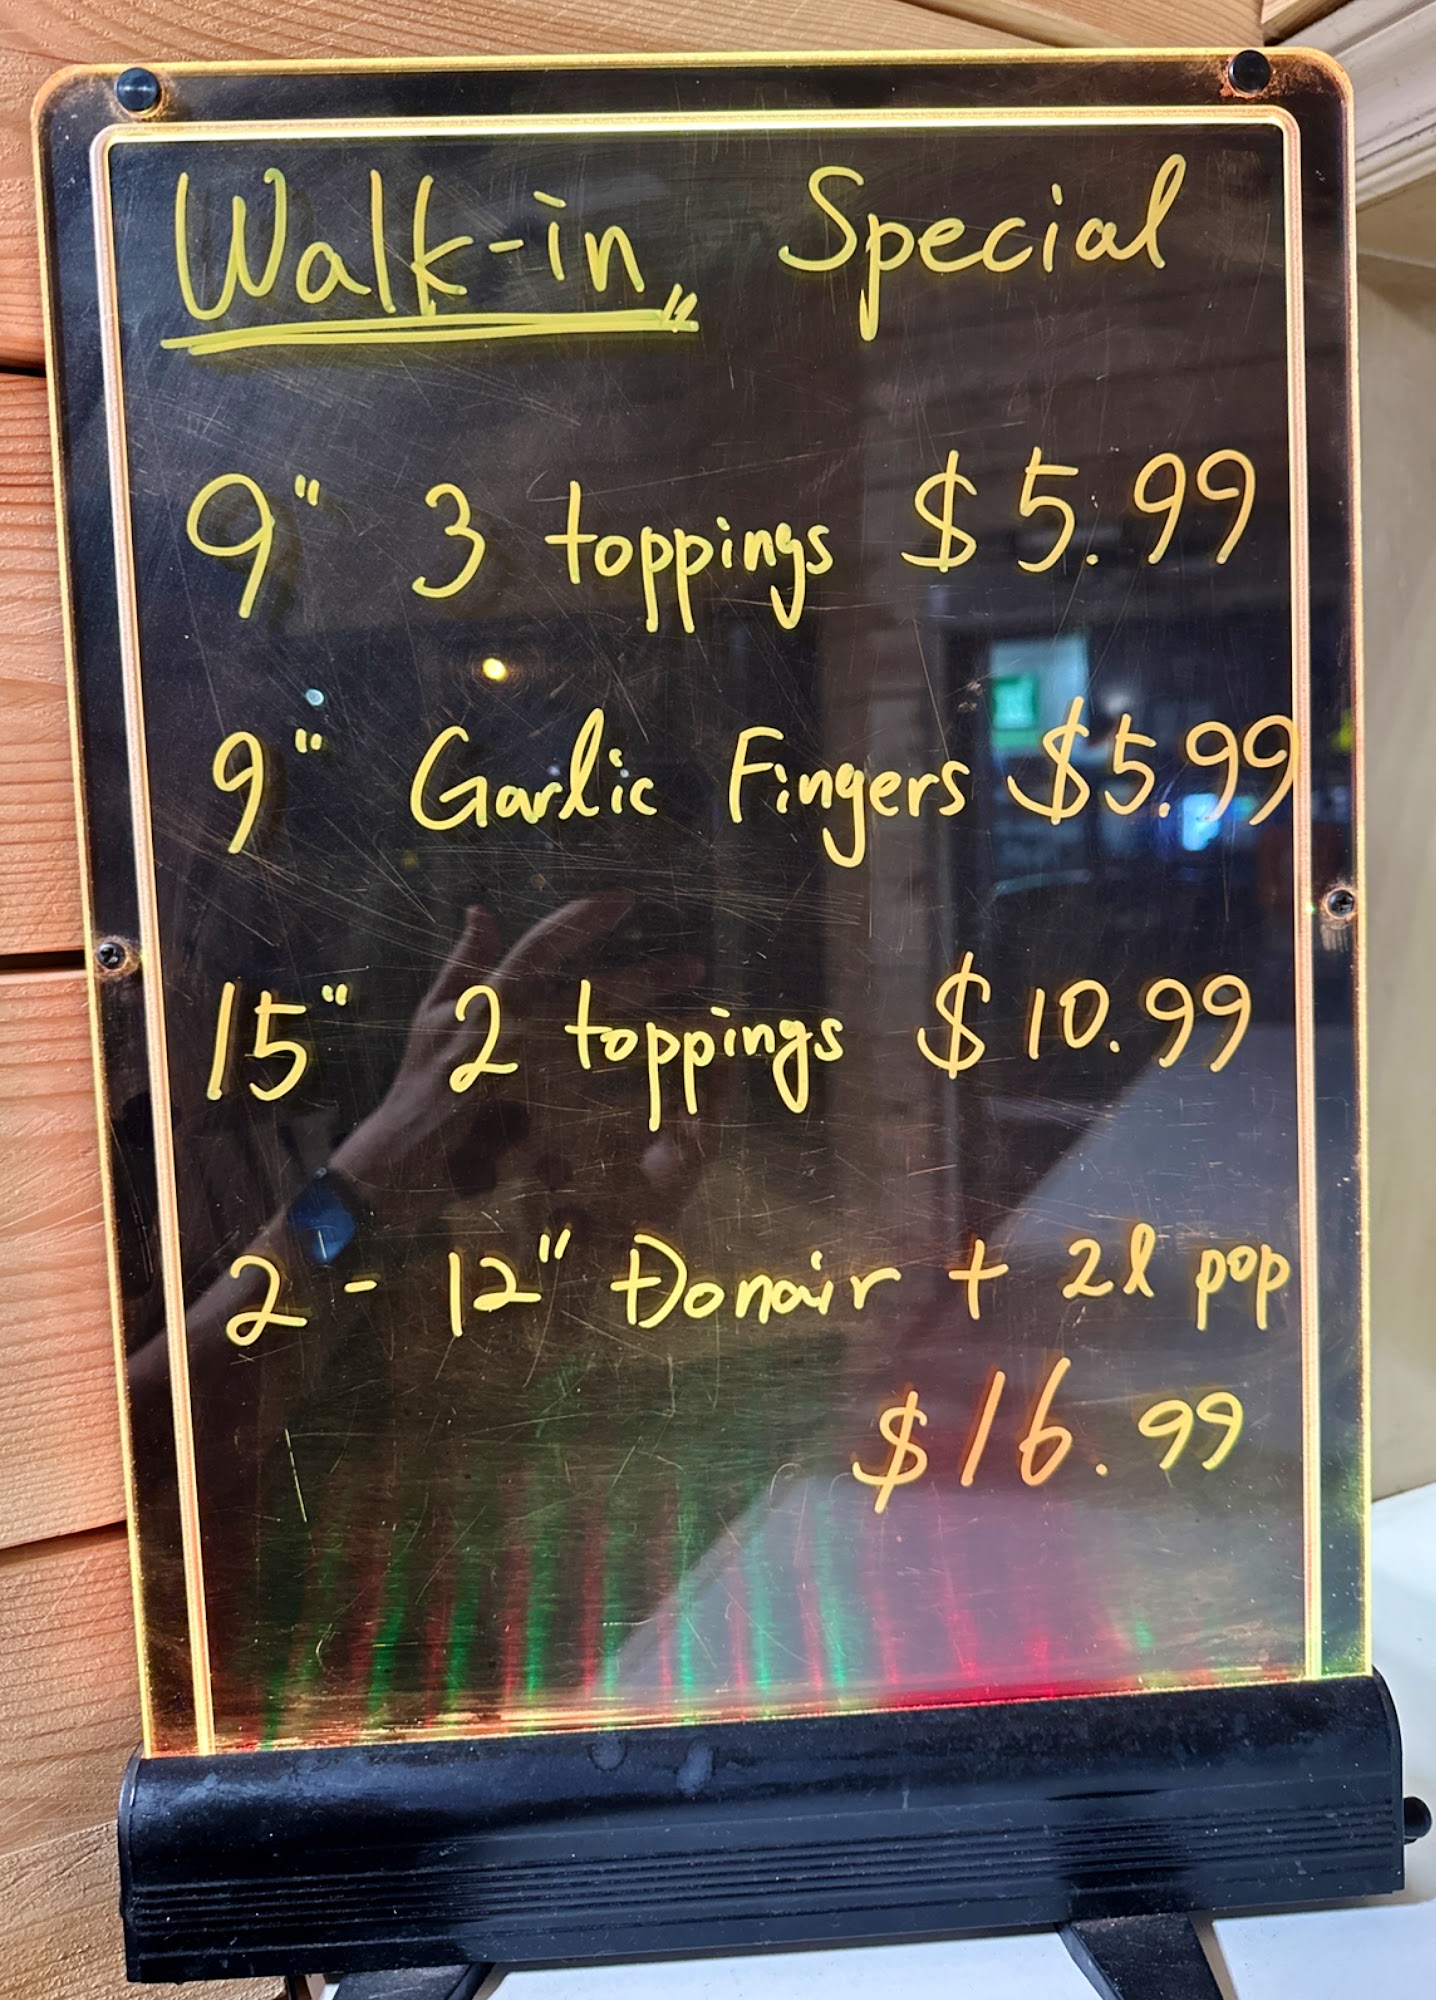 Walk-in„ Special
9" 3 toppings $5.99
9" Garlic Fingers $5.99
15" 2 toppings $10.99
2 - 12" Donair + 2l pop
$16.99